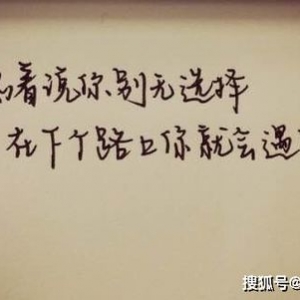 着说你别无选择
在下个路口你就会遇
搜狐号@